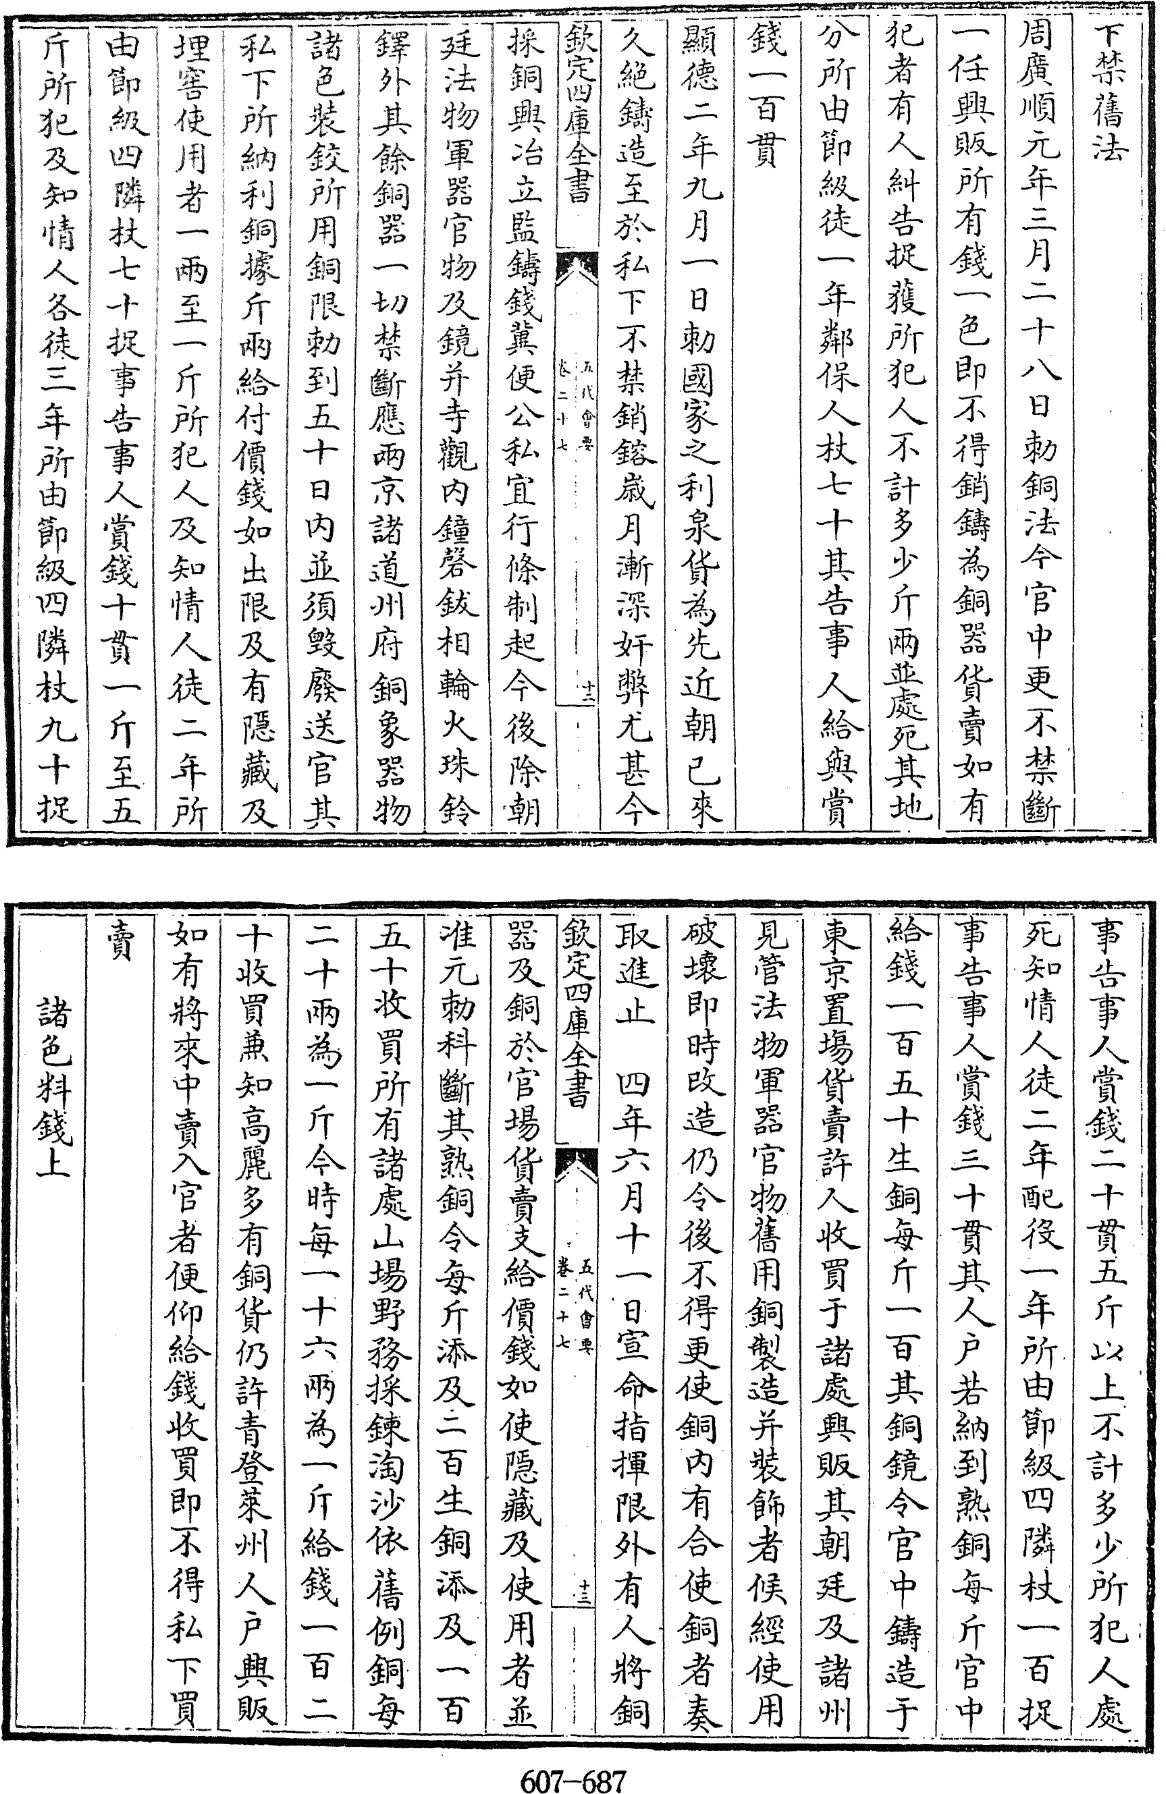 下禁舊法
周廣順元年三月二十八日勅銅法今官中更不禁斷
一任興販所有錢一色即不得銷鑄為銅器貨賣如有
犯者有人糾告捉獲所犯人不計多少斤兩並處死其地
分所由節級徒一年鄰保人杖七十其告事人給與賞
錢一百貫
顯德二年九月一日勅國家之利泉貨為先近朝已來
久絕鑄造至於私下不禁銷鎔歲月漸深奸弊尤甚今
欽定四庫全書
五代會要
卷二十七
十二
採銅興冶立監鑄錢冀便公私宜行條制起今後除朝
廷法物軍器官物及鏡并寺觀內鐘磬鈸相輪火珠鈴
鐸外其餘銅器一切禁斷應兩京諸道州府銅象器物
諸色裝鉸所用銅限勅到五十日內並須毀廢送官其
私下所納利銅據斤兩給付價錢如出限及有隱藏及
埋窖使用者一兩至一斤所犯人及知情人徒二年所
由節級四隣杖七十捉事告事人賞錢十貫一斤至五
斤所犯及知情人各徒三年所由節級四隣杖九十捉
事告事人賞錢二十貫五斤以上不計多少所犯人處
死知情人徒二年配役一年所由節級四隣杖一百捉
事告事人賞錢三十貫其人户若納到熟銅每斤官中
給錢一百五十生銅每斤一百其銅鏡令官中鑄造于
東京置場貨賣許人收買于諸處興販其朝廷及諸州
見管法物軍器官物舊用銅製造并裝飾者候經使用
破壞即時改造仍令後不得更使銅內有合使銅者奏
取進止　四年六月十一日宣命指揮限外有人將銅
欽定四庫全書
五代會要
卷二十七
十三
器及銅於官場貨賣支給價錢如使隱藏及使用者並
准元勅科斷其熟銅令每斤添及二百生銅添及一百
五十收買所有諸處山場野務採鍊淘沙依舊例銅每
二十兩為一斤今時每一十六兩為一斤給錢一百二
十收買兼知高麗多有銅貨仍許青登萊州人户興販
如有將來中賣入官者便仰給錢收買即不得私下買
賣
諸色料錢上
607-687